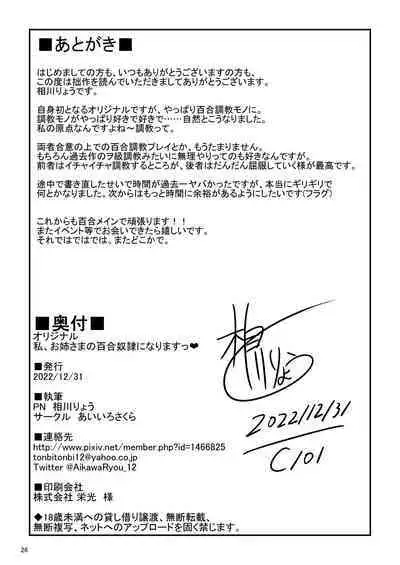 ■あとがき■
はじめましての方も、いつもありがとうございますの方も、
この度は拙作を読んでいただきましてありがとうございます。
相川りょうです。
自身初となるオリジナルですが、やっぱり百合調教モノに。
調教モノがやっぱり好きで好きで……自然とこうなりました。
私の原点なんですよね～調教って。
両者合意の上での百合調教プレイとか、もうたまりません。
もちろん過去作のヲ級調教みたいに無理やりってのも好きなんですが。
前者はイチャイチャ調教するが、後者はだんだん屈服していく様が最高です。
途中で書き直したせいで時間が過去一ヤバかったですが、本当にギリギリで
何とかなりました、次からはもっと時間に余裕があるようにしたいです(フラグ)
これからも百合メインで頑張ります！！
またイベント等でお会いできたら嬉しいです。
それではではでは、またどこかで。
■奥付■
オリジナル
私、お姉さまの百合奴隷になりますっ❤
■発行
2022/12/31
■執筆
PN　相川りょう
サークル　あいいろさくら
■連絡先
http://www.pixiv.net/member.php?id=1466825
tonbitonbi12@yahoo.co.jp
Twitter @AikawaRyou_12
■印刷会社
株式会社 栄光　様
◆18歳未満への貸し借り譲渡、無断転載、
無断複写、ネットへのアップロードを固く禁じます。
相川りょう
2022/12/31
C101
26